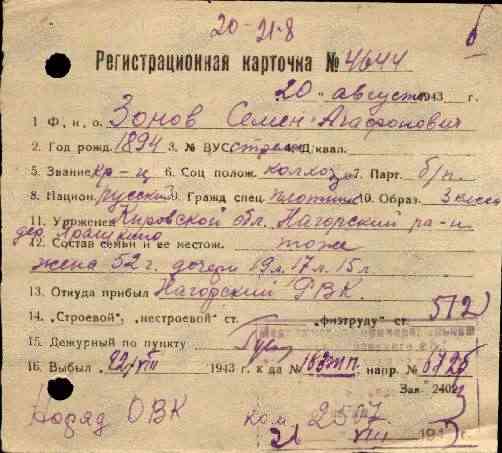 20-21-8
б
Регистрационная карточка № 4644
20 " августа 1943 г.
1 Ф, и, о. Зонов Семен Агафонович
2. Год рожд. 1894 3. № ВУС стрелк 4. Д/квал.
5. Звание кр-ц 6. Соц полож. колхоз 7. Парт. б/п.
8. Национ. русский 9. Гражд спец. плотник 10. Образ. 3 класса
11. Уроженец Кировской обл. Нагорский ра-н
дер.
12. Состав семьи и ее местож. тоже
жена 52 г. дочери 19 л. 17 л. 15 л.
13. Откуда прибыл Нагорский РВК.
14. „Строевой“, „нестроевой“ ст. „физтруду“ ст. 512
15. Дежурный по пункту
16. Выбыл 22/VIII 1943 г. к да № 163 зп. напр. № 6725
Зак 2402
Наряд ОВК ком. 2567
21 VIII 194